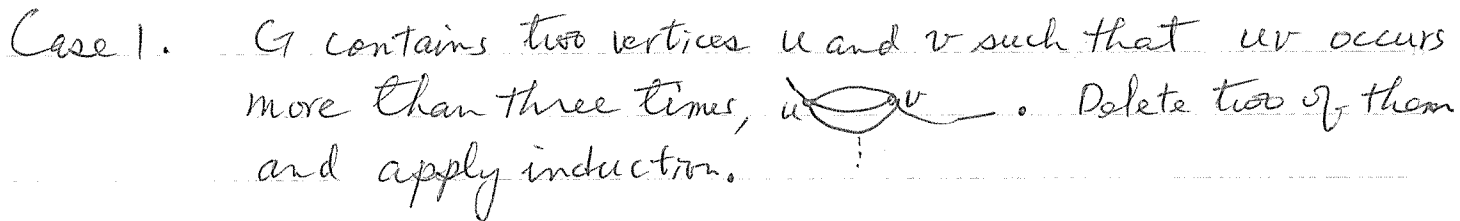 Case 1. G contains two vertices u and v such that uv occurs
more than three times, u v . Delete two of them
and apply induction.